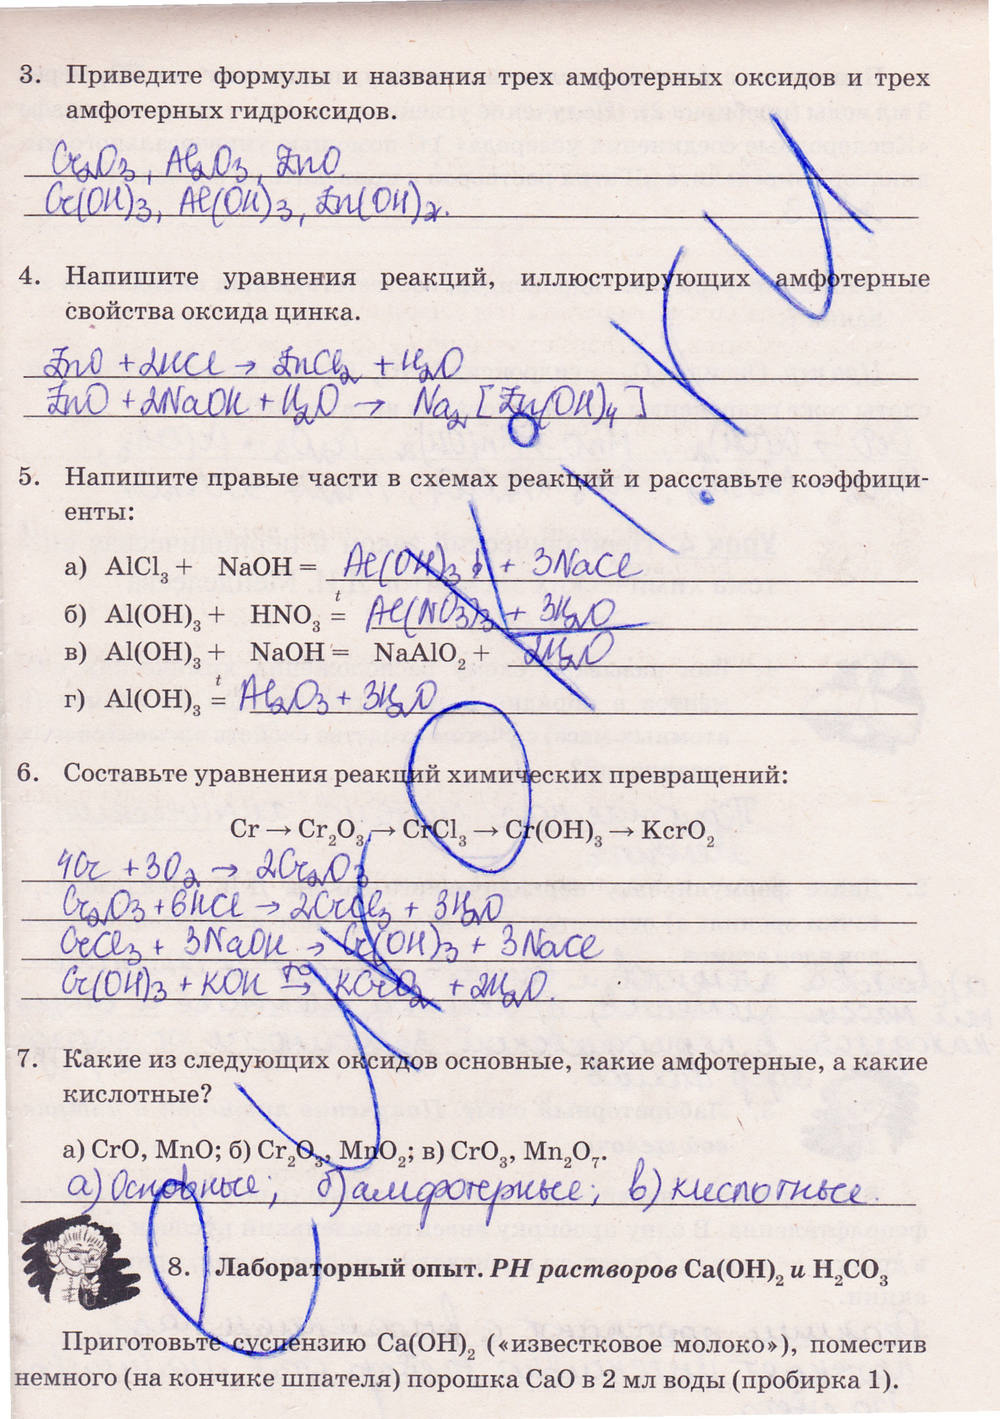 3. Приведите формулы и названия трех амфотерных оксидов и трех
амфотерных гидроксидов.
Cr₂O₃, Al₂O₃, ZnO.
Cr(OH)₃, Al(OH)₃, Zn(OH)₂.
4. Напишите уравнения реакций, иллюстрирующих амфотерные
свойства оксида цинка.
ZnO + 2HCl → ZnCl₂ + H₂O
ZnO + 2NaOH + H₂O → Na₂[Zn(OH)₄]
5. Напишите правые части в схемах реакций и расставьте коэффици-
енты:
а) AlCl₃ + NaOH = Al(OH)₃↓ + 3NaCl
б) Al(OH)₃ + HNO₃ = Al(NO₃)₃ + 3H₂O
в) Al(OH)₃ + NaOH =ᵗ NaAlO₂ + 2H₂O
г) Al(OH)₃ =ᵗ Al₂O₃ + 3H₂O
6. Составьте уравнения реакций химических превращений:
Cr → Cr₂O₃ → CrCl₃ → Cr(OH)₃ → KcrO₂
4Cr + 3O₂ → 2Cr₂O₃
Cr₂O₃ + 6HCl → 2CrCl₃ + 3H₂O
CrCl₃ + 3NaOH → Cr(OH)₃ + 3NaCl
Cr(OH)₃ + KOH →ᵗ° KCrO₂ + 2H₂O.
7. Какие из следующих оксидов основные, какие амфотерные, а какие
кислотные?
а) CrO, MnO; б) Cr₂O₃, MnO₂; в) CrO₃, Mn₂O₇.
а) основные; б) амфотерные; в) кислотные.
8. Лабораторный опыт. РН растворов Ca(OH)₂ и H₂CO₃
Приготовьте суспензию Ca(OH)₂ («известковое молоко»), поместив
немного (на кончике шпателя) порошка CaO в 2 мл воды (пробирка 1).